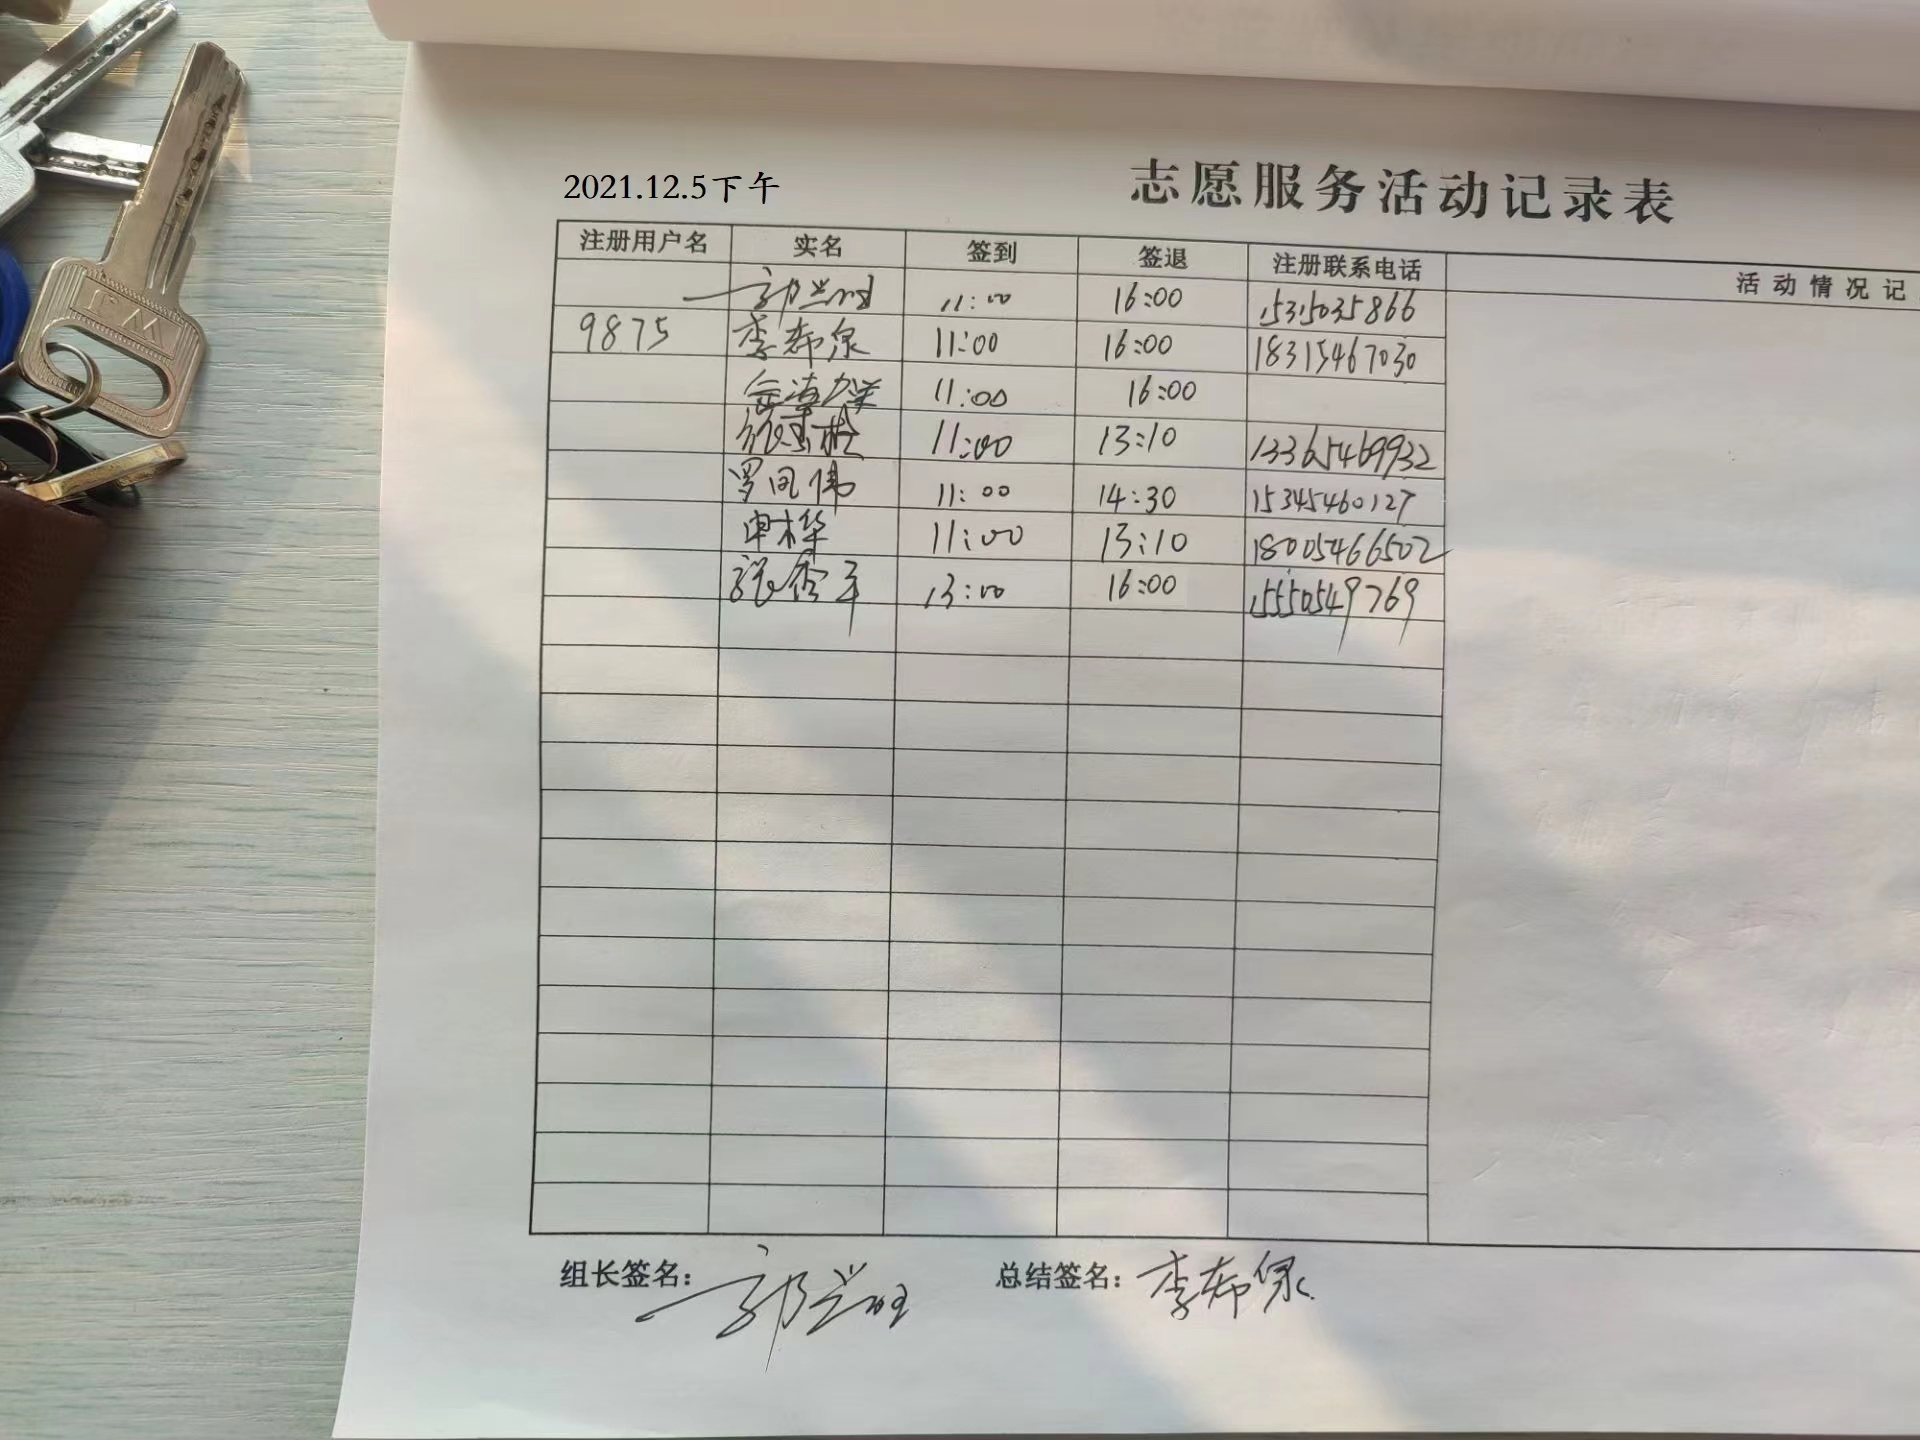 2021.12.5下午
志愿服务活动记录表
注册用户名 实名 签到 签退 注册联系电话 活动情况记
郭兴旺 11:00 16:00 15315035866
9875 李希泉 11:00 16:00 18315467030
11:00 16:00
11:00 13:10 13365469932
罗凤伟 11:00 14:30 15345460127
申木华 11:00 13:10 18005466502
张 13:00 16:00 15550549769
组长签名： 郭兴旺 总结签名： 李希泉